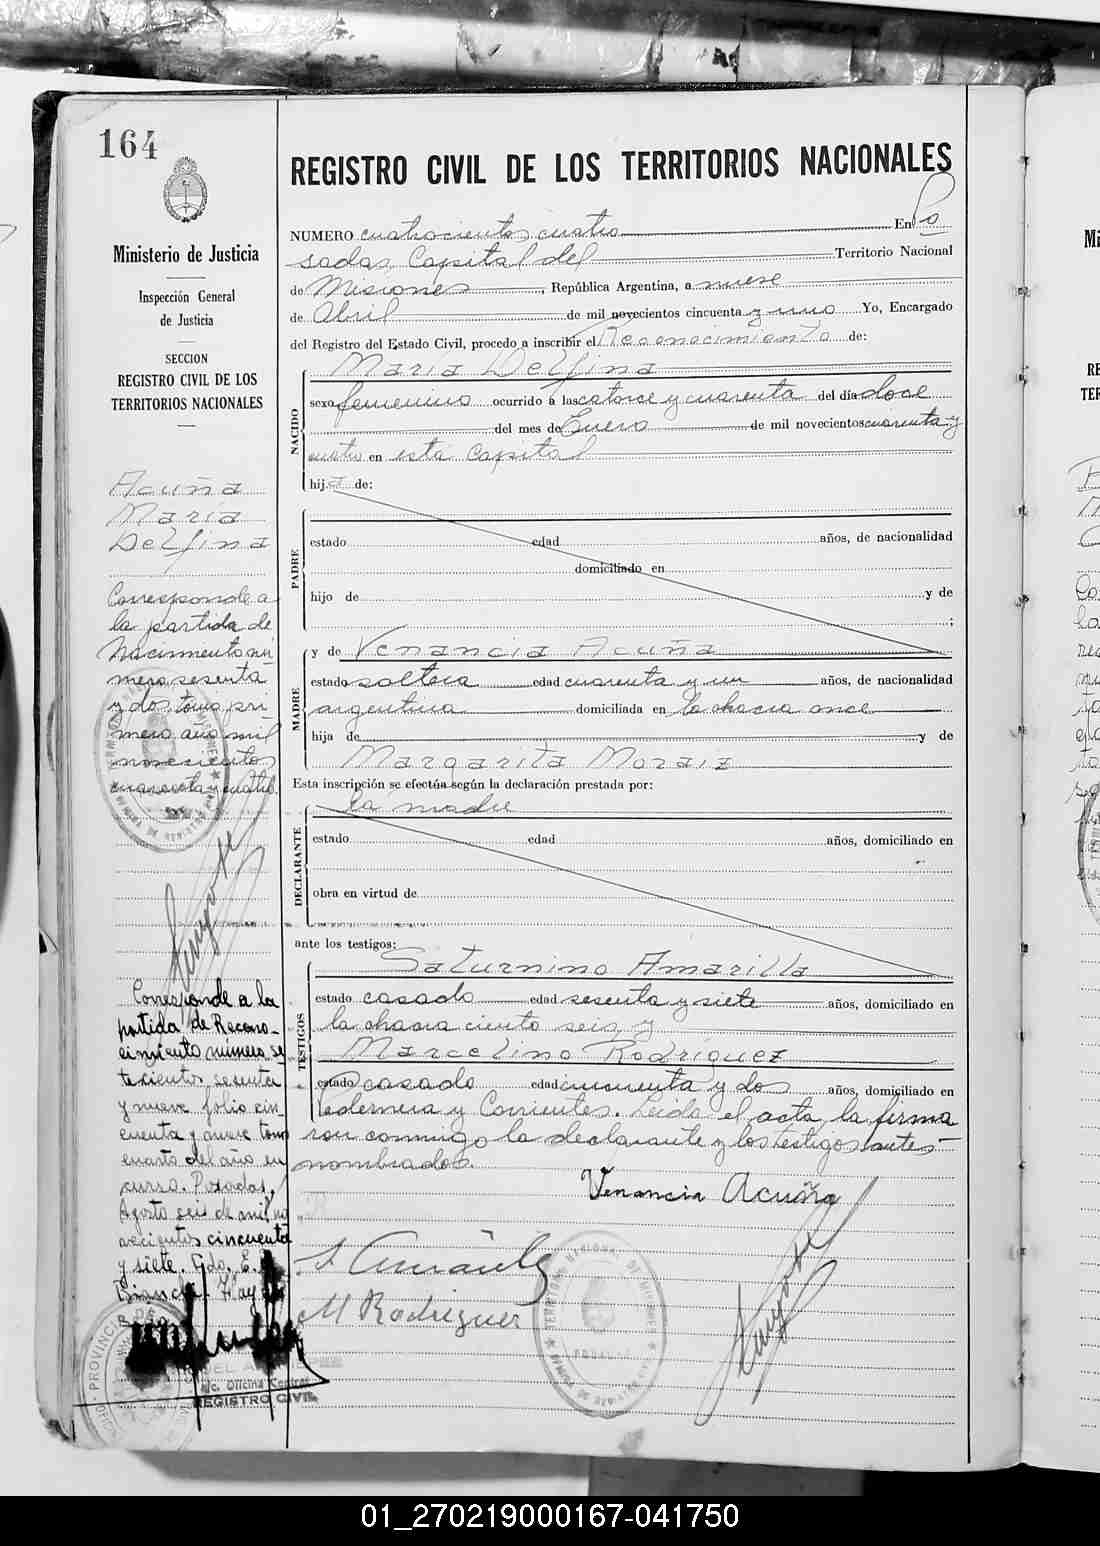 164
Ministerio de Justicia
Inspección General
de Justicia
SECCION
REGISTRO CIVIL DE LOS
TERRITORIOS NACIONALES
Acuña
María
Delfina
Corresponde a
la partida de
Nacimiento nú
mero sesenta
y dos, tomo pri
mero año mil
novecientos
cuarenta y cuatro.
Corresponde a la
partida de Recono-
cimiento número se
tecientos sesenta
y nueve folio cin-
cuenta y nueve tomo
cuarto del año en
curso. Posadas,
Agosto seis de mil no
vecientos cincuenta
y siete. Gdo. E.
Oficina Central
REGISTRO CIVIL
REGISTRO CIVIL DE LOS TERRITORIOS NACIONALES
NUMERO cuatrocientos cuatro En Po
sadas, Capital del Territorio Nacional
de Misiones, República Argentina, a nueve
de Abril de mil novecientos cincuenta y uno Yo, Encargado
del Registro del Estado Civil, procedo a inscribir el Reconocimiento de:
María Delfina
NACIDO
sexo femenino ocurrido a las catorce y cuarenta del día doce
del mes de Enero de mil novecientos cuarenta y
cuatro en esta Capital
hija de:
PADRE
estado edad años, de nacionalidad
domiciliado en
hijo de y de
;
MADRE
y de Venancia Acuña
estado soltera edad cuarenta y un años, de nacionalidad
argentina domiciliada en la chacra once
hija de y de
Margarita Moraiz
Esta inscripción se efectúa según la declaración prestada por:
DECLARANTE
la madre
estado edad años, domiciliado en
obra en virtud de
ante los testigos:
TESTIGOS
Saturnino Amarilla
estado casado edad sesenta y siete años, domiciliado en
la chacra ciento seis, y
Marcelino Rodríguez
estado casado edad cincuenta y dos años, domiciliado en
Pedernera y Corrientes. Leida el acta, la firma
ron conmigo la declarante y los testigos antes
nombrados.
Venancia Acuña
M Rodriguez
01_270219000167-041750